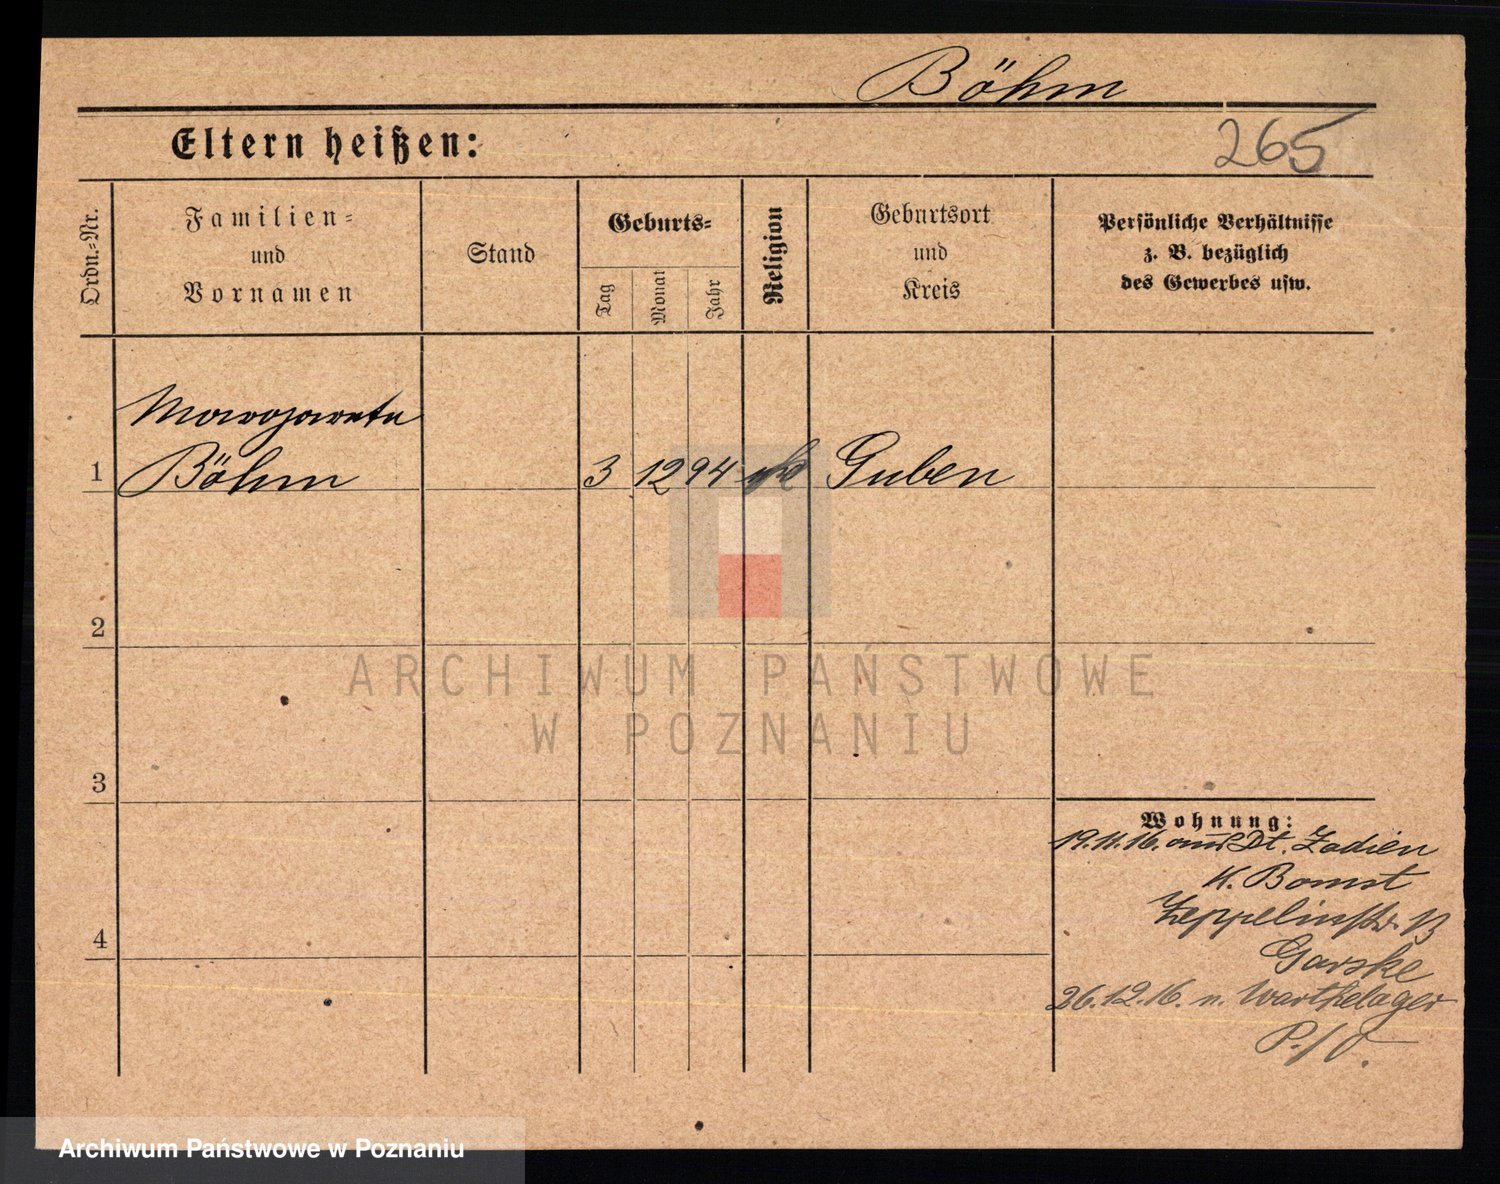 Böhm
Eltern heißen:
265
Ordn.=Nr.
Familien=
und
Vornamen
Stand
Geburts=
Tag
Monat
Jahr
Religion
Geburtsort
und
Kreis
Persönliche Verhältnisse
z. B. bezüglich
des Gewerbes usw.
Margareta
1 Böhm 3 12 94 Guben
2
3
4
Wohnung:
19.11.16. aus Dt.
K. Bomst
Zeppelinstr. 13
Garske
26.12.16. n. Warthelager
ARCHIWUM PAŃSTWOWE
W POZNANIU
Archiwum Państwowe w Poznaniu